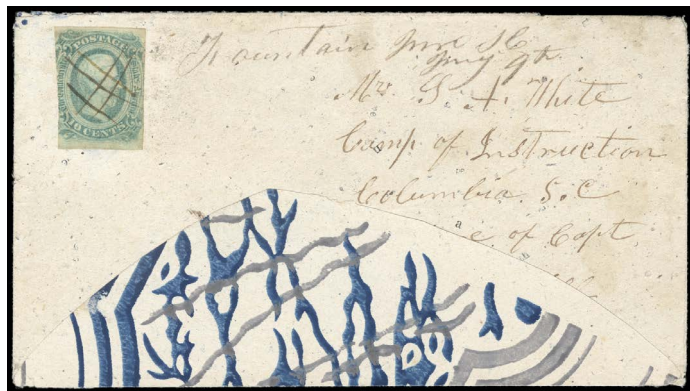 POSTAGE
10 CENTS
Fountain Inn SC
May 9th
Mr. G. A. White
Camp of Instruction
Columbia S.C
e of Capt